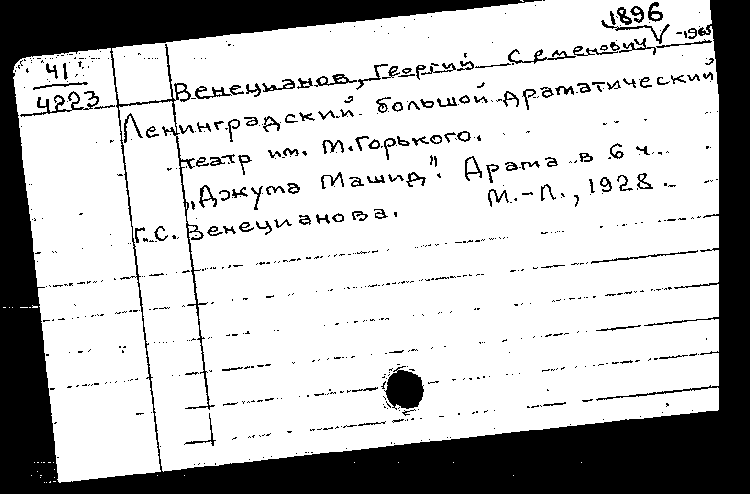 1896
41
4223
Венецианов, Георгий Семенович, -1965
Ленинградский большой драматический
театр им. М.Горького.
„Джума Машид". Драма в 6 ч.
Г.С. Венецианова. М.-Л., 1928.